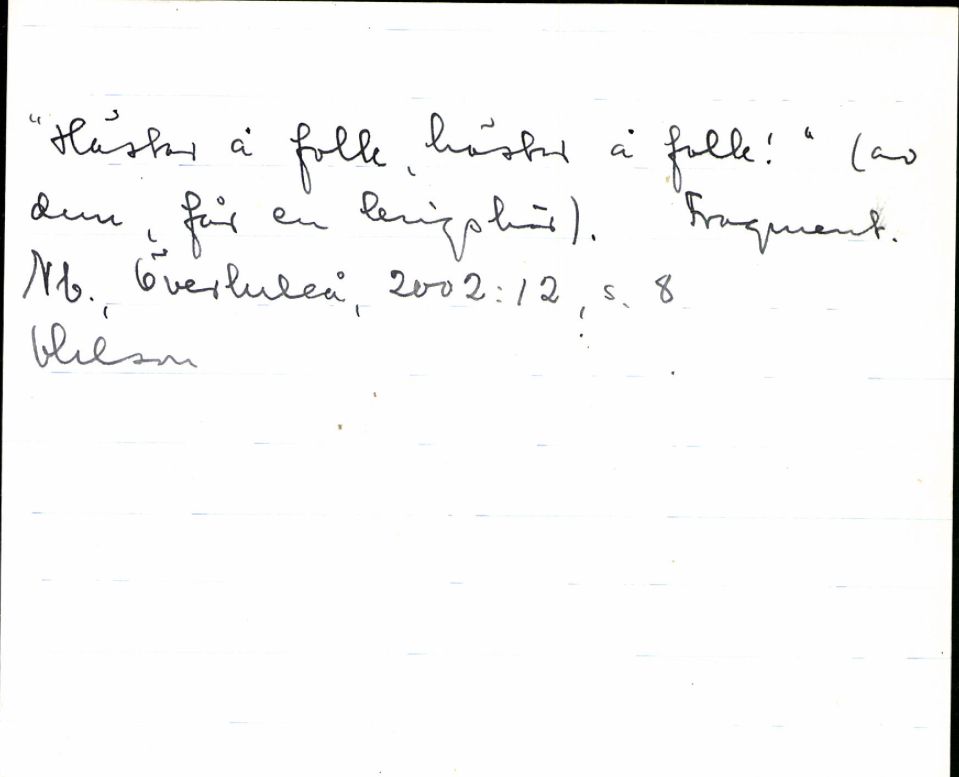 "Hästar å folk, hästar å folk!" (av
dem, får en krigshär). Fragment.
Nb., Överluleå, 2002:12, s. 8